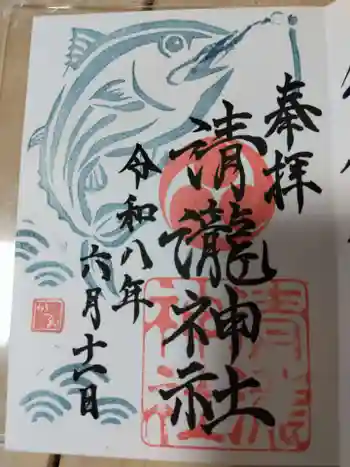 奉拝
清瀧神社
令和八年
六月十一日
清瀧
神社